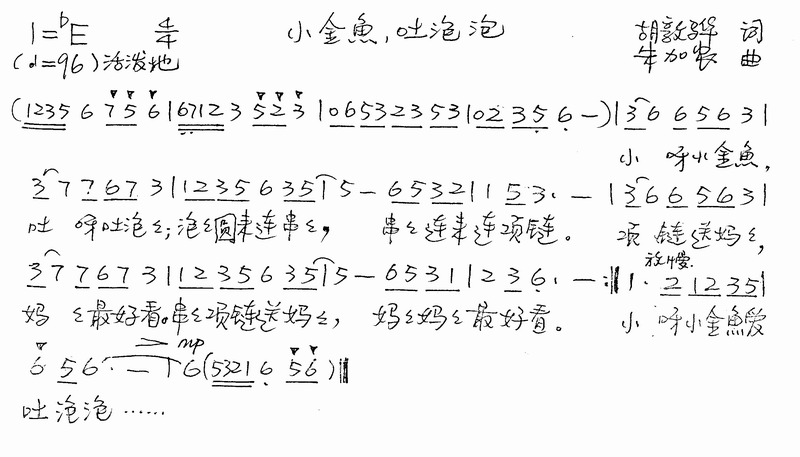 1=♭E 4/4 小金魚,吐泡泡 胡敦骅 词
(♩=96)活泼地 朱加农 曲
(1235 6 7 5 6|6712 3 5 2 3|06532353|02 35 6 –)|36 6 56 3|
小 呀小金魚,
37 7 67 3|1235 6 35|15 – 6532|1 53. – |36 6 56 3|
吐 呀吐泡〻;泡〻圆来连串〻, 串〻连来连项链。 项 链送妈〻,
37 7 67 3|1235 6 35|15 – 6531|2 36. – :‖1. 2 1235|
放慢.
妈 〻最好看。串〻项链送妈〻, 妈〻妈〻最好看。 小 呀小金魚爱
6 56. – 16(5321 6 56)‖
> mp
吐泡泡……